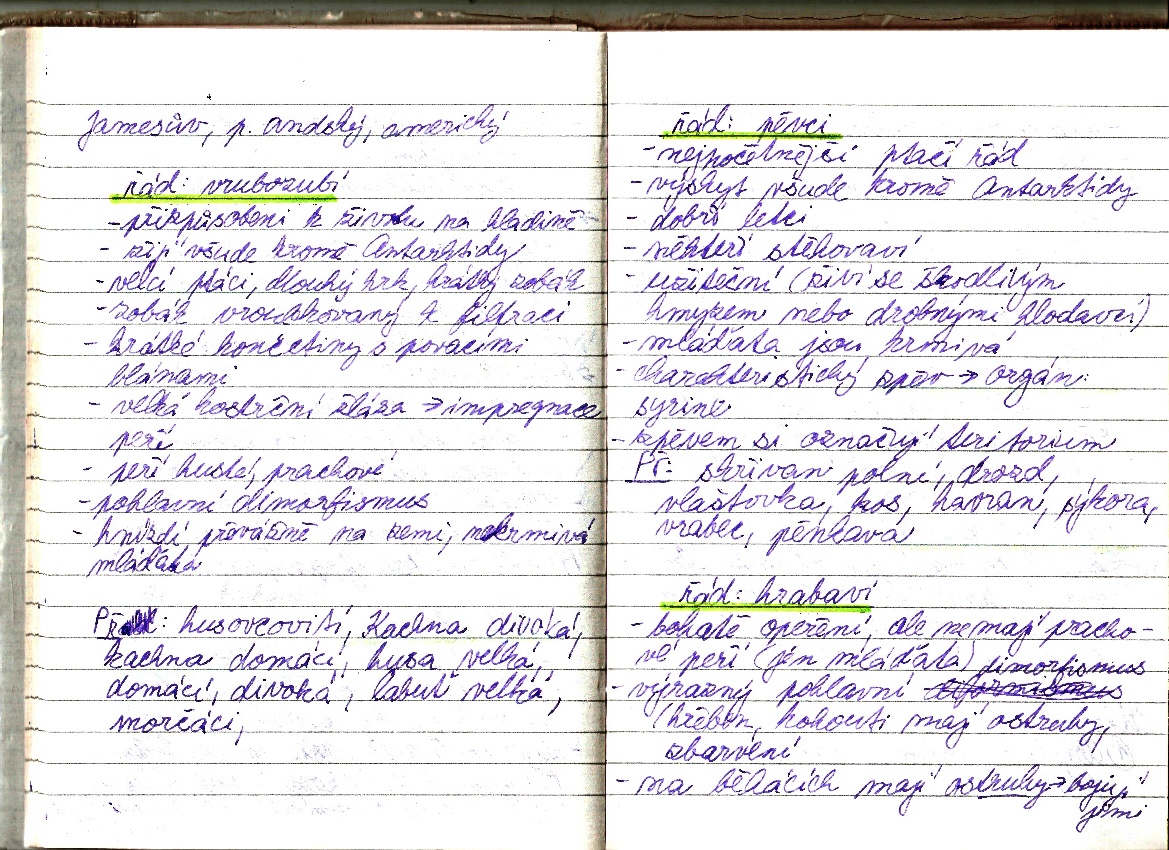 Jamesův, p. andský, americký
řád: vrubozubí
- přizpůsobeni k životu na hladině
- žijí všude kromě Antarktidy
- velcí ptáci, dlouhý krk, krátký zobák
- zobák vroubkovaný k filtraci
- krátké končetiny s plovacími
blánami
- velká kostrční žláza → impregnace
peří
- peří husté, prachové
- pohlavní dimorfismus
- hnízdí převážně na zemi, nekrmivá
mláďata
Př: husovcovití, Kachna divoká,
kachna domácí, husa velká,
domácí, divoká, labuť velká,
morčáci,
řád: pěvci
- nejpočetnější ptačí řád
- výskyt všude kromě Antarktidy
- dobří letci
- někteří stěhovaví
- užiteční (živí se škodlivým
hmyzem nebo drobnými hlodavci)
- mláďata jsou krmivá
- charakteristický zpěv → orgán:
syrinx
- zpěvem si označují teritorium
Př: skřivan polní, drozd,
vlaštovka, kos, havran, sýkora,
vrabec, pěnkava
řád: hrabaví
- bohaté opeření, ale nemají pracho-
vé peří (jen mláďata)
- výrazný pohlavní dimorfismus
(hřeben, kohouti mají ostruhy,
zbarvení
- na běhácích mají ostruhy → bojují
jimi